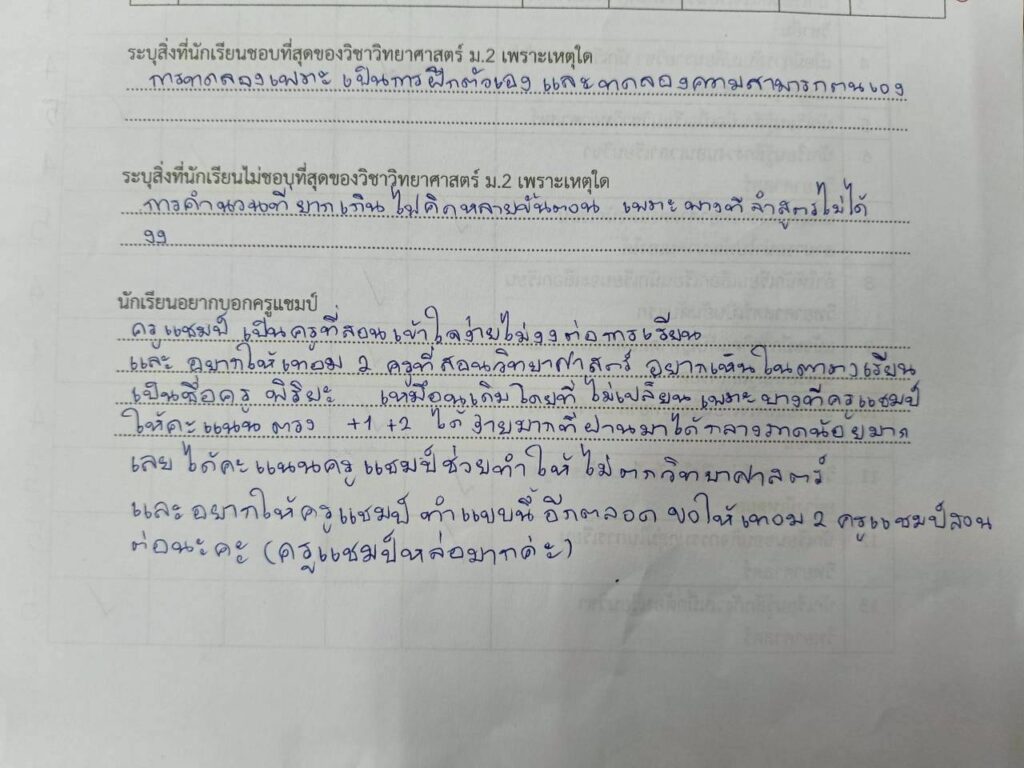 ระบุสิ่งที่นักเรียนชอบที่สุดของวิชาวิทยาศาสตร์ ม.2 เพราะเหตุใด
การทดลองเพราะ เป็นการฝึกตัวเอง และทดลองความสามารถตนเอง
ระบุสิ่งที่นักเรียนไม่ชอบที่สุดของวิชาวิทยาศาสตร์ ม.2 เพราะเหตุใด
การคำนวนที่ยากเกินไปคิดหลายขั้นตอน เพราะบางทีจำสูตรไม่ได้
งง
นักเรียนอยากบอกครูแชมป์
ครูแชมป์ เป็นครูที่สอนเข้าใจง่ายไม่งงต่อการเรียน
และ อยากให้เทอม 2 ครูที่สอนวิทยาศาสตร์ อยากเห็นในตารางเรียน
เป็นชื่อครู พิริยะ เหมือนเดิมโดยที่ ไม่เปลี่ยน เพราะบางทีครูแชมป์
ให้คะแนน ตรง +1 +2 ได้ง่ายมากที่ผ่านมาได้กลางภาคน้อยมาก
เลย ได้คะแนนครูแชมป์ช่วยทำให้ ไม่ตกวิทยาศาสตร์
และอยากให้ครูแชมป์ ทำแบบนี้ อีกตลอด ขอให้เทอม 2 ครูแชมป์สอน
ต่อนะคะ (ครูแชมป์หล่อมากค่ะ)